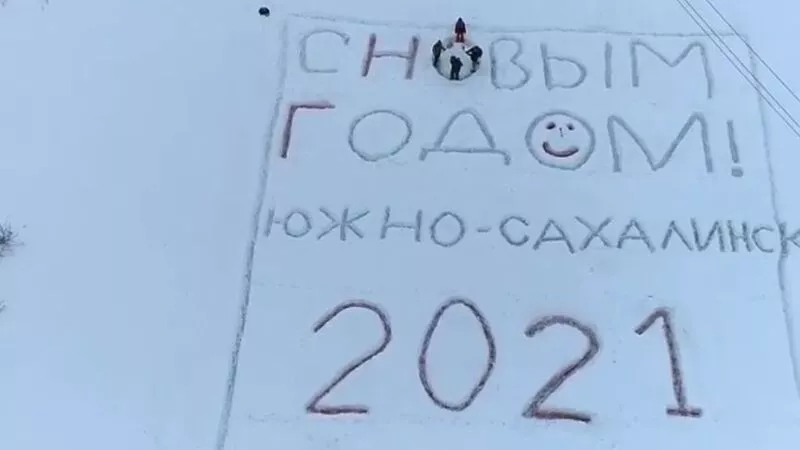 С НОВЫМ
ГОДОМ!
ЮЖНО-САХАЛИНСК
2021